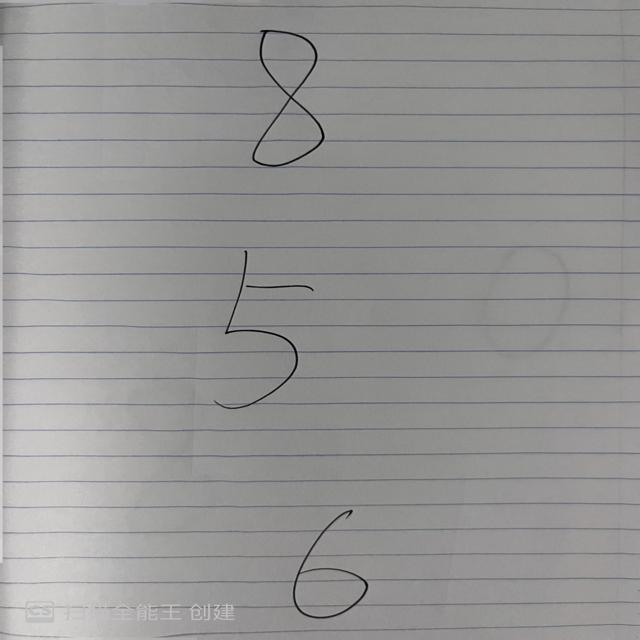 8
5
6
CS 扫描全能王 创建